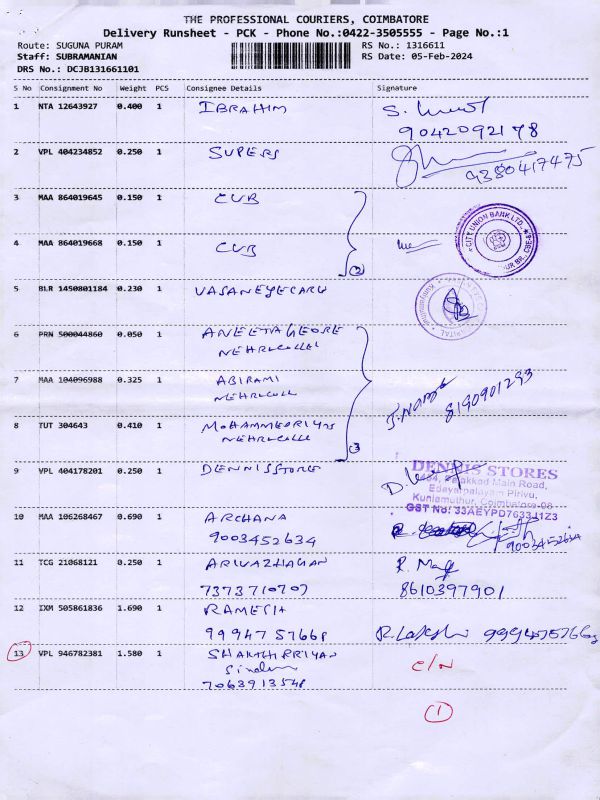 THE PROFESSIONAL COURIERS, COIMBATORE
Delivery Runsheet - PCK - Phone No.:0422-3505555 - Page No.:1
Route: SUGUNA PURAM RS No.: 1316611
Staff: SUBRAMANIAN RS Date: 05-Feb-2024
DRS No.: DCJB131661101
S No Consignment No Weight PCS Consignee Details Signature
1 NTA 12643927 0.400 1 IBRAHIM
9042092178
2 VPL 404234852 0.250 1 SUPERS
9380417475
3 MAA 864019645 0.150 1 CUB
CITY UNION BANK LTD.
4 MAA 864019668 0.150 1 CUB
2
5 BLR 1450801184 0.230 1 VASANEYECARE
6 PRN 500044860 0.050 1 ANEETAGEORE
NEHRUCOLLE
7 MAA 104096988 0.325 1 ABIRAMI
NEHRUCOLL
8190901293
8 TUT 304643 0.410 1 MOHAMMEDRIYAS
NEHRUCOLLE
3
9 VPL 404178201 0.250 1 DENNISSTORE
DENNIS STORES
Palakkad Main Road,
Edayarpalayam Pirivu,
Kuniamuthur, Coimbatore-08
GST No: 33AEYPD7633J1Z3
10 MAA 106268467 0.690 1 ARCHANA
9003452634 9003452634
11 TCG 21068121 0.250 1 ARIVAZHAGAN
7373710707 8610397901
12 IXM 505861836 1.690 1 RAMESH
9994757668 9994757668
13 VPL 946782381 1.580 1 SHAKTHIPRIYAN
7063913548
C/N
1